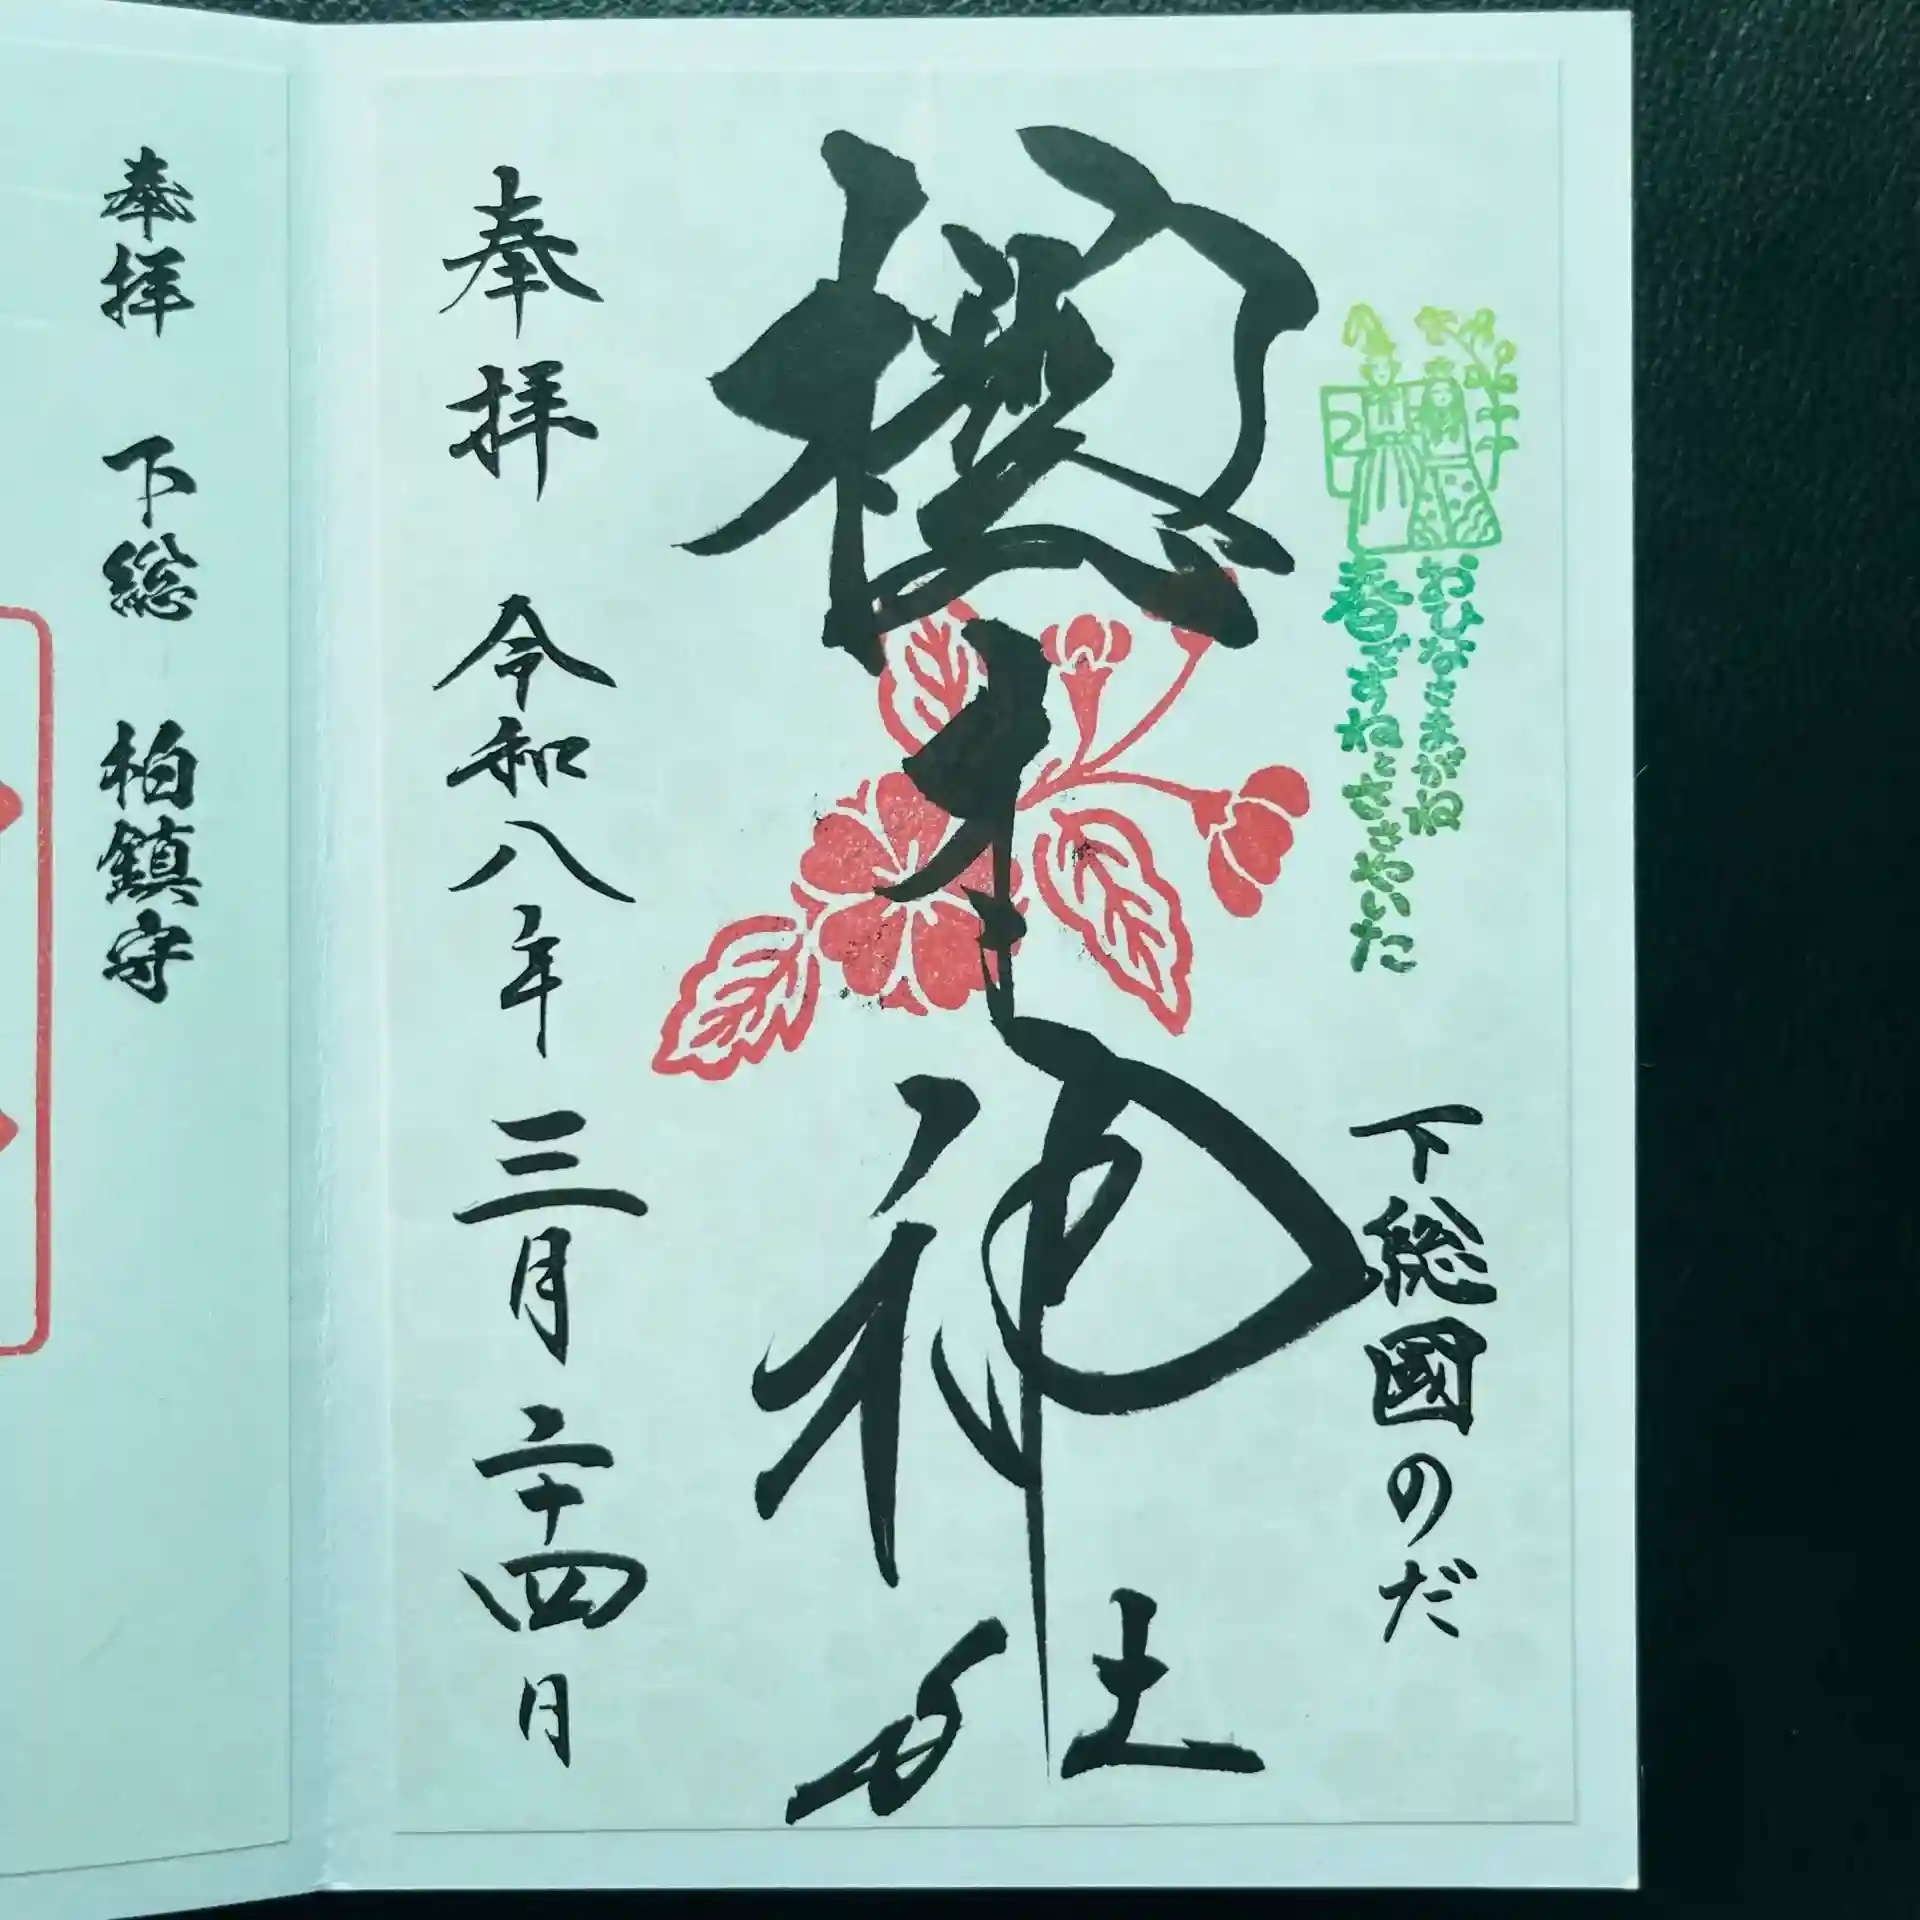 下総國のだ
おひなさまがね
春ですねとささやいた
櫻木神社
奉拝 令和八年 三月 二十四日
奉拝 下総 柏鎮守